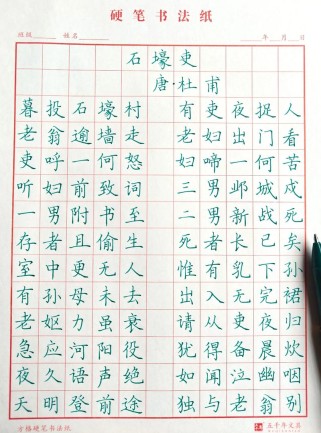 硬笔书法纸
班级 姓名 年 月 日
石壕吏
唐·杜甫
暮投石壕村 有吏夜捉人
老翁逾墙走 老妇出门看
吏呼一何怒 妇啼一何苦
听妇前致词 三男邺城戍
一男附书至 二男新战死
存者且偷生 死者长已矣
室中更无人 惟有乳下孙
有孙母未去 出入无完裙
老妪力虽衰 请从吏夜归
急应河阳役 犹得备晨炊
夜久语声绝 如闻泣幽咽
天明登前途 独与老翁别
方格硬笔书法纸 五千年文具